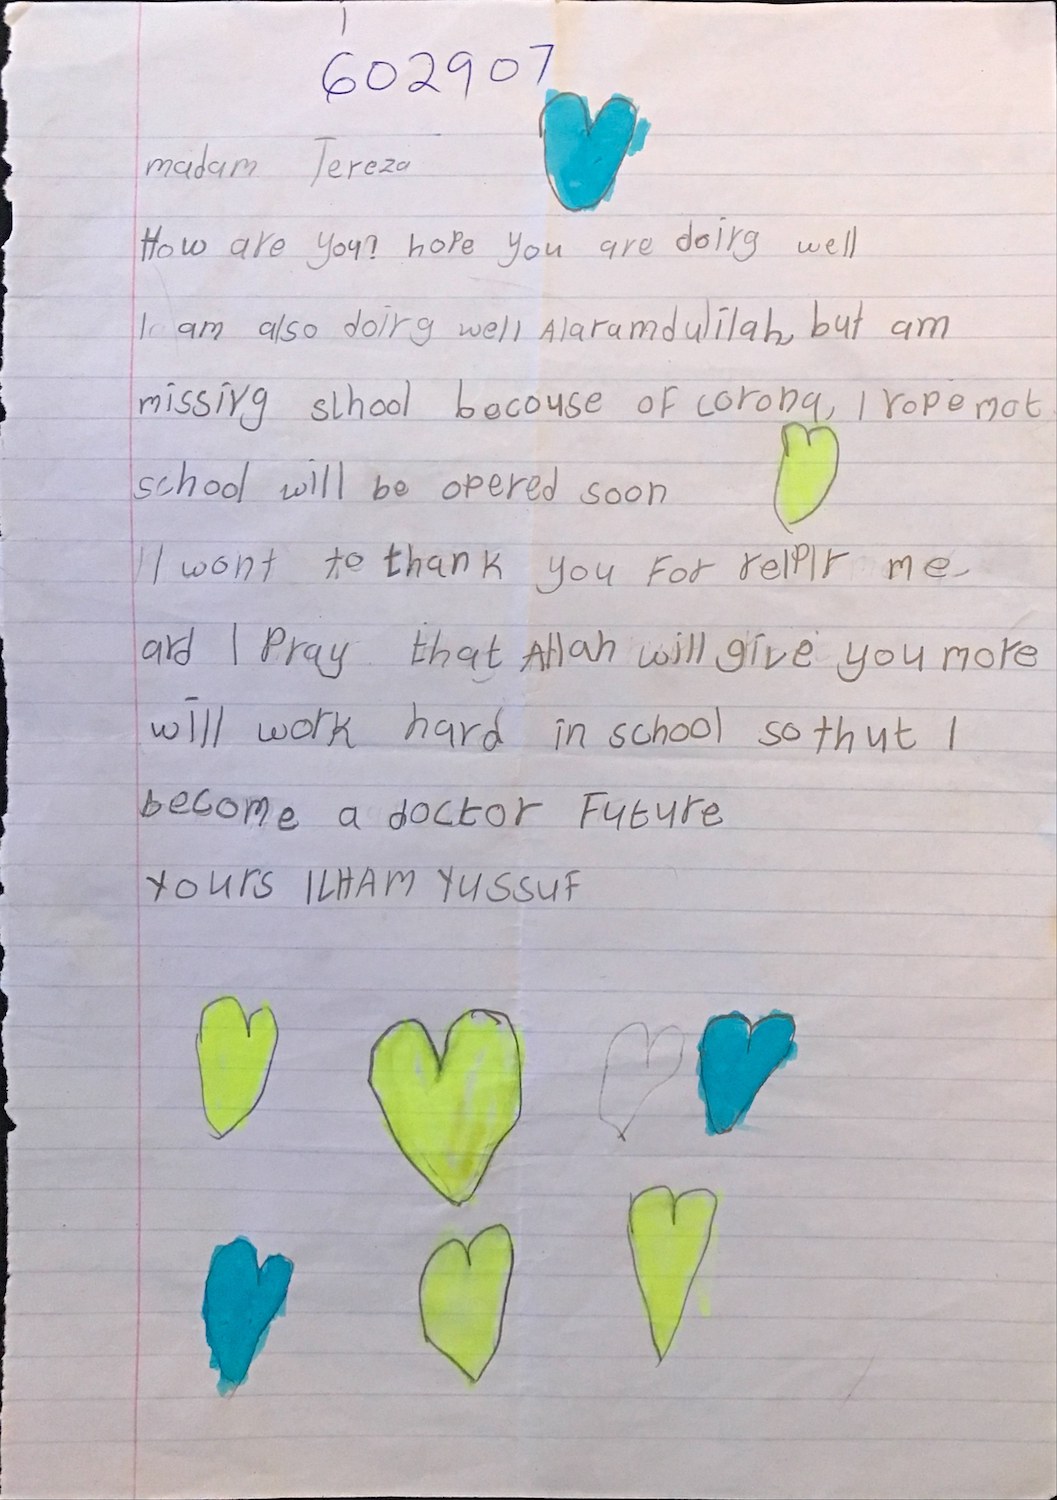 602907
madam Tereza
How are you? hope you are doirg well
I am also doirg well Alaramdulilah, but am
missirg slhool becouse of corona, I rope mot
school will be opered soon
I wont to thank you For relPIr me
ard I Pray that Allah will give you more
will work hard in school so thut I
become a doctor Future
Yours ILHAM YUSSUF